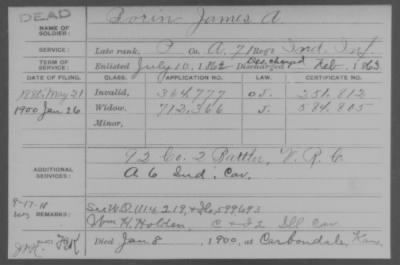 DEAD
NAME OF SOLDIER:
Dorin James A.
SERVICE:
Late rank, P Co. A, 71 Reg't Ind. Inf.
TERM OF SERVICE:
Enlisted July 10, 1862 Discharged Feb. 1863
DATE OF FILING. CLASS. APPLICATION NO. LAW. CERTIFICATE NO.
1880, May 21 Invalid, 364,777 O.S. 251,812
1900 Jan 26 Widow, 712,366 S. 584,805
Minor,
ADDITIONAL SERVICES:
92 Co. 2 Battln, V. R. C.
A 6 Ind. Cav.
9-17-18
REMARKS:
599693
Wm H. Holden, Ill Cav
Died Jan 8, 1900, at Carbondale, Kan.